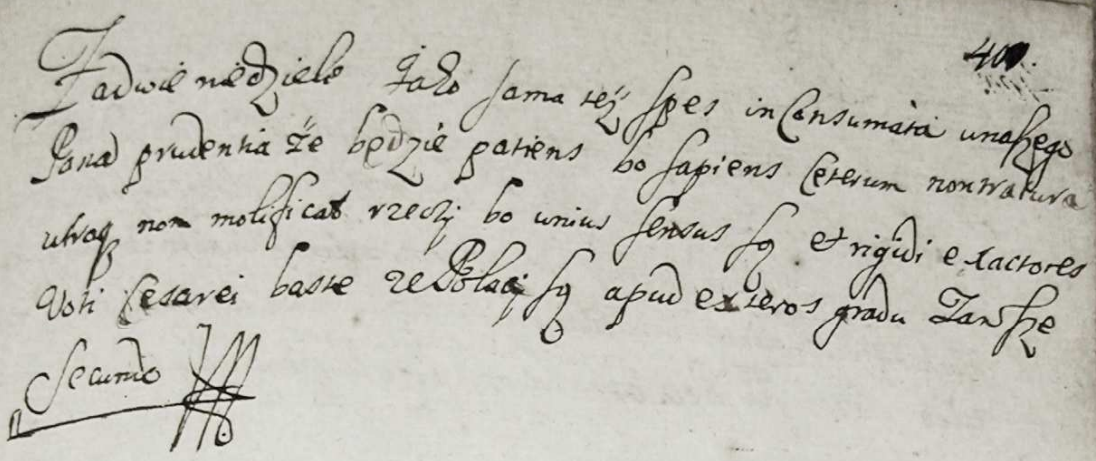 401.
Zadwie niedziele Jako sama też spes in Consumata unaszego
Pana prudentia że będzie patiens bo sapiens Ceterum non
utraq non molificat rzeczÿ bo unius sensus są et rigidi exactores
Voti Cesarei baste ze Polacÿ są apud exteros gradu Zawsze
Secundo